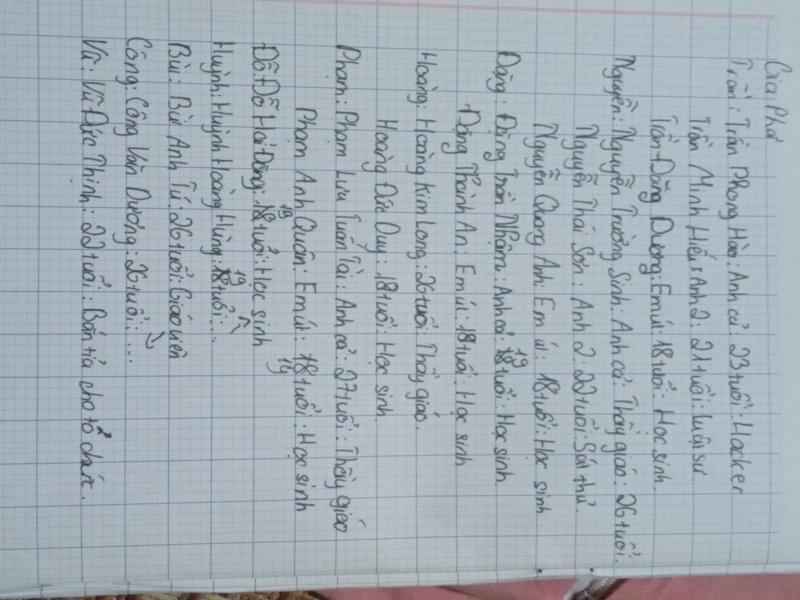 Gia Phả
Trần: Trần Phong Hào: Anh cả: 23 tuổi: Hacker
Trần Minh Hiếu: Anh 2: 21 tuổi: Luật sư
Trần Đăng Dương: Em út: 18 tuổi: Học sinh.
Nguyễn: Nguyễn Trường Sinh: Anh cả: Thầy giáo: 26 tuổi.
Nguyễn Thái Sơn: Anh 2: 22 tuổi: Sát thủ.
Nguyễn Quang Anh: Em út: 18 tuổi: Học sinh
Đặng: Đặng Trần Nhậm: Anh cả: 19 tuổi: Học sinh
Đặng Thành An: Em út: 18 tuổi: Học sinh
Hoàng: Hoàng Kim Long: 26 tuổi: Thầy giáo.
Hoàng Đức Duy: 18 tuổi: Học sinh.
Phạm: Phạm Lưu Tuấn Tài: Anh cả: 27 tuổi: Thầy giáo
Phạm Anh Quân: Em út: 19 tuổi: Học sinh
Đỗ: Đỗ Hải Đăng: 19 tuổi: Học sinh
Huỳnh: Huỳnh Hoàng Hùng: 19 tuổi: ...
Bùi: Bùi Anh Tú: 26 tuổi: Giáo viên
Công: Công Văn Dương: 26 tuổi: ...
Vũ: Vũ Đức Thịnh: 22 tuổi: Bán tỉa cho tổ chức.